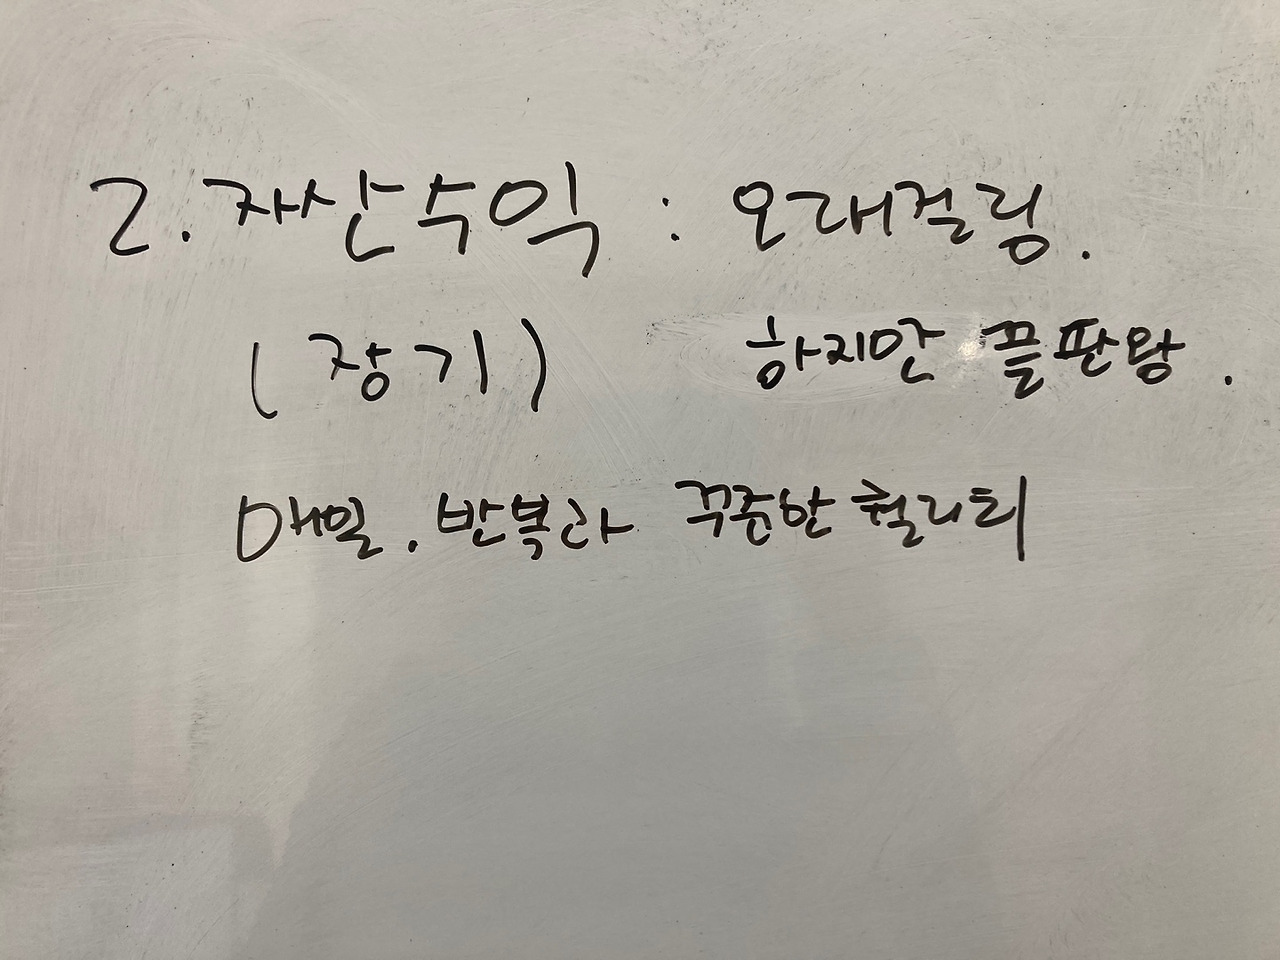 2. 자산수익 : 오래걸림.
(장기) 하지만 끝판왕.
매일. 반복과 꾸준한 퀄리티